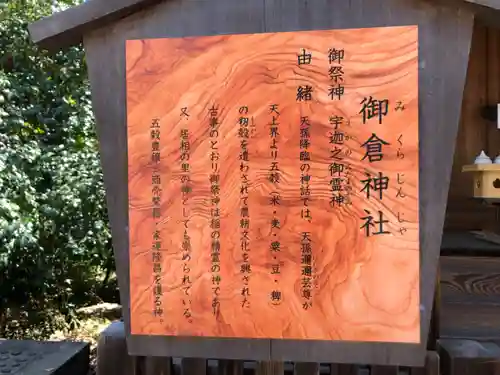 御倉神社
みくらじんじゃ
御祭神　宇迦之御霊神
うかのみたまの
由緒　天孫降臨の神話では、天孫邇邇芸尊が
天上界より五穀（米・麦・粟・豆・稗）
の籾殻を遣わされて農耕文化を興された
もみ
古事のとおり御祭神は稲の精霊の神であり
又、居相の里の神としても崇められている。
五穀豊穣・商売繁盛・家運隆昌を護る神。